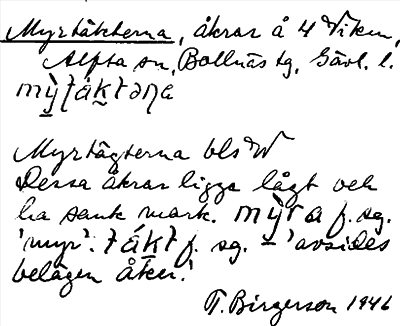 Myrtäkterna, åkrar å 4 Viken,
Alfta sn, Bollnäs tg, Gävl. l.
Myrtägterna bls W
Dessa åkrar ligga lågt och
ha sank mark. f. sg.
'myr'. f. sg. – 'avsides
belägen åker.'
T. Birgerson 1946